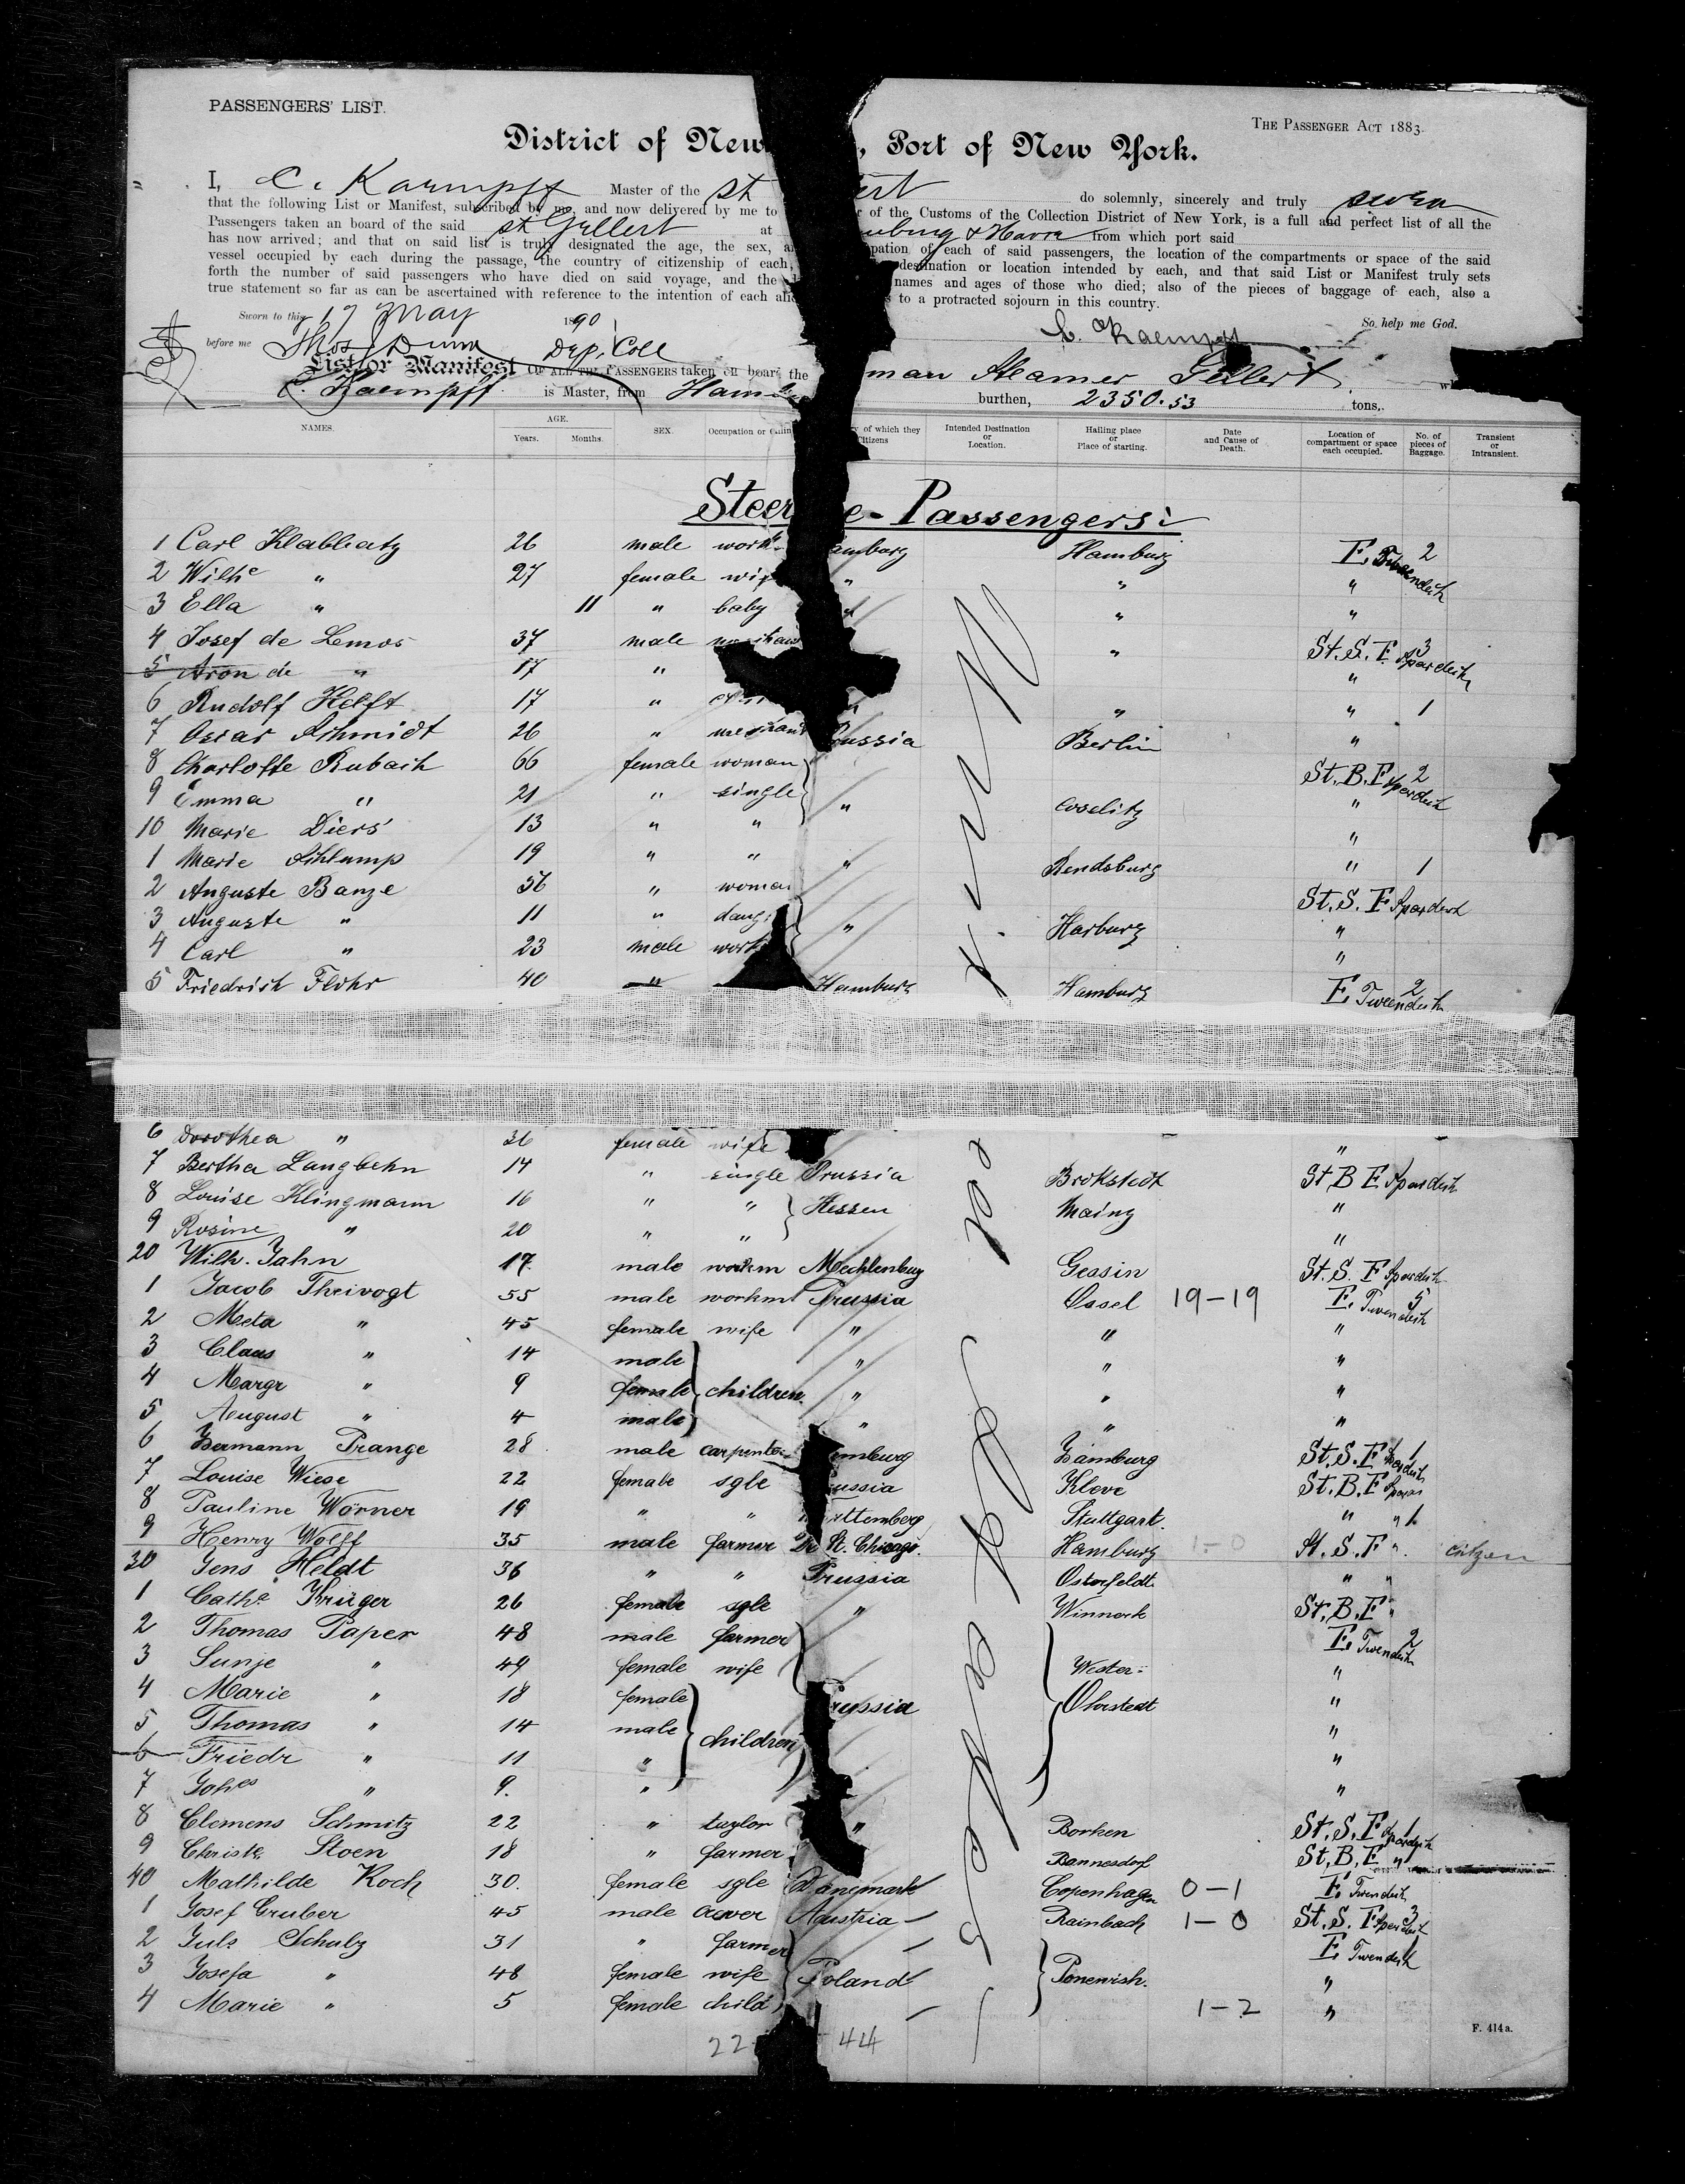 PASSENGERS' LIST.
THE PASSENGER ACT 1883.
District of New , Port of New York.
I, C. Kaempff Master of the St ert do solemnly, sincerely and truly swear
that the following List or Manifest, subscribed by me, and now delivered by me to of the Customs of the Collection District of New York, is a full and perfect list of all the
Passengers taken on board of the said St Gellert at burg & Havre from which port said
has now arrived; and that on said list is truly designated the age, the sex, pation of each of said passengers, the location of the compartments or space of the said
vessel occupied by each during the passage, the country of citizenship of each, destination or location intended by each, and that said List or Manifest truly sets
forth the number of said passengers who have died on said voyage, and the names and ages of those who died; also of the pieces of baggage of each, also a
true statement so far as can be ascertained with reference to the intention of each alie to a protracted sojourn in this country.
Sworn to this 17 May 1890 So help me God.
before me Thos J Dunn Dep. Coll C. Kaempff
List or Manifest OF ALL THE PASSENGERS taken on board the man Steamer Gellert
C. Kaempff is Master, from Ham burthen, 2350.53 tons,
NAMES. AGE. Years. Months. SEX. Occupation or of which they Citizens Intended Destination or Location. Hailing place or Place of starting. Date and Cause of Death. Location of compartment or space each occupied. No. of pieces of Baggage. Transient or Intransient.
Steer e-Passengers:
1 Carl Klabbatz 26 male work amburg Hamburg E Tweendeck 2
2 Wilhe " 27 female wife " " "
3 Ella " 11 " baby " " "
4 Josef de Lemos 37 male " St. S. F Spardeck 3
5 Aron de " 17 " "
6 Rudolf Helft 17 " " " 1
7 Oscar Schmidt 26 " merchant russia Berlin "
8 Charlotte Rubach 66 female woman St. B. F Spardeck 2
9 Emma " 21 " single " Coselitz "
10 Marie Diers 13 " " "
1 Marie Schlump 19 " " " Rendsburg " 1
2 Auguste Banze 56 " woman St. S. F Spardeck
3 Auguste " 11 " daug " Harburg "
4 Carl " 23 male work "
5 Friedrich Flohr 40 " Hamburg Hamburg E Tweendeck 2
6 Dorothea " 36 female wife "
7 Bertha Langbehn 14 " single Prussia Brokstedt St B F Spardeck
8 Louise Klingmann 16 " " Hessen Mainz "
9 Rosine " 20 " " "
20 Wilh. Jahn 17 male workm Mecklenburg Gessin St. S. F Spardeck
1 Jacob Theivogt 55 male workm Prussia Ossel 19-19 E. Tweendeck 5
2 Meta " 45 female wife " " "
3 Claus " 14 male " " "
4 Margr " 9 female children " " "
5 August " 4 male " " "
6 Hermann Prange 28 male carpenter mburg Hamburg St. S. F Spardeck 1
7 Louise Wiese 22 female sgle ussia Kleve St. B. F
8 Pauline Wörner 19 " " ürttemberg Stuttgart. " " 1
9 Henry Wolff 35 male farmer St. Chicago. Hamburg 1-0 St. S. F " citizen
30 Jens Heldt 36 " " Prussia Osterfeldt. " "
1 Cathe Krüger 26 female sgle " Winnert St. B. F "
2 Thomas Paper 48 male farmer E Tweendeck 2
3 Sunje " 49 female wife Wester- "
4 Marie " 18 female russia Ohrstedt "
5 Thomas " 14 male children "
6 Friedr " 11 " "
7 Johes " 9. " "
8 Clemens Schmitz 22 " taylor " Borken St. S. F Spardeck 1
9 Christe Stoen 18 " farmer Bannesdorf St. B. F "
40 Mathilde Koch 30. female sgle Danemark Copenhagen 0-1 E Tweendeck
1 Josef Gruber 45 male Austria Rainbach 1-0 St. S. F Spardeck 3
2 Juls Schulz 31 " farmer E Tweendeck 1
3 Josefa " 48 female wife Poland Ponewish. "
4 Marie " 5 female child 1-2 "
New York
22 44
F. 414 a.